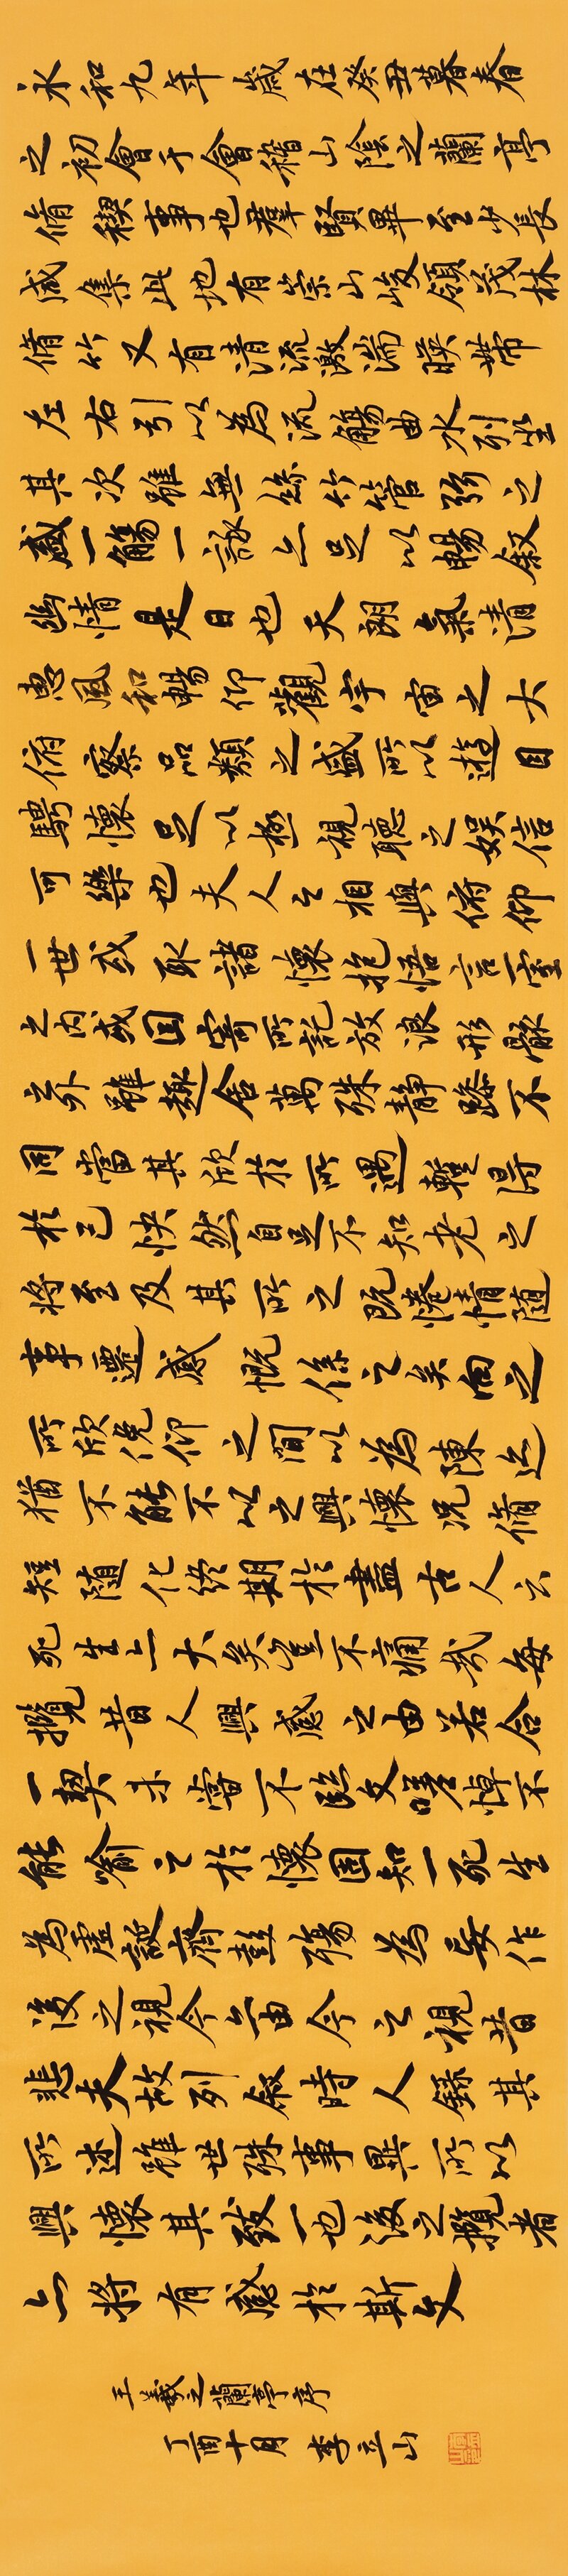 永和九年歲在癸丑暮春
之初會于會稽山陰之蘭亭
脩稧事也羣賢畢至少長
咸集此地有崇山峻領茂林
脩竹又有清流激湍暎帶
左右引以為流觴曲水列坐
其次雖無絲竹管弦之
盛一觴一詠亦足以暢叙
幽情是日也天朗氣清
惠風和暢仰觀宇宙之大
俯察品類之盛所以遊目
騁懷足以極視聽之娛信
可樂也夫人之相與俯仰
一世或取諸懷抱悟言一室
之內或因寄所託放浪形骸
之外雖趣舍萬殊靜躁不
同當其欣於所遇暫得
於己快然自足不知老之
將至及其所之既惓情隨
事遷感慨係之矣向之
所欣俛仰之間以為陳迹
猶不能不以之興懷況脩
短隨化終期於盡古人云
死生亦大矣豈不痛哉每
攬昔人興感之由若合
一契未嘗不臨文嗟悼不
能喻之於懷固知一死生
為虛誕齊彭殤為妄作
後之視今亦由今之視昔
悲夫故列叙時人錄其
所述雖世殊事異所以
興懷其致一也後之攬者
亦將有感於斯文
王羲之蘭亭序
丁酉十月 李立山